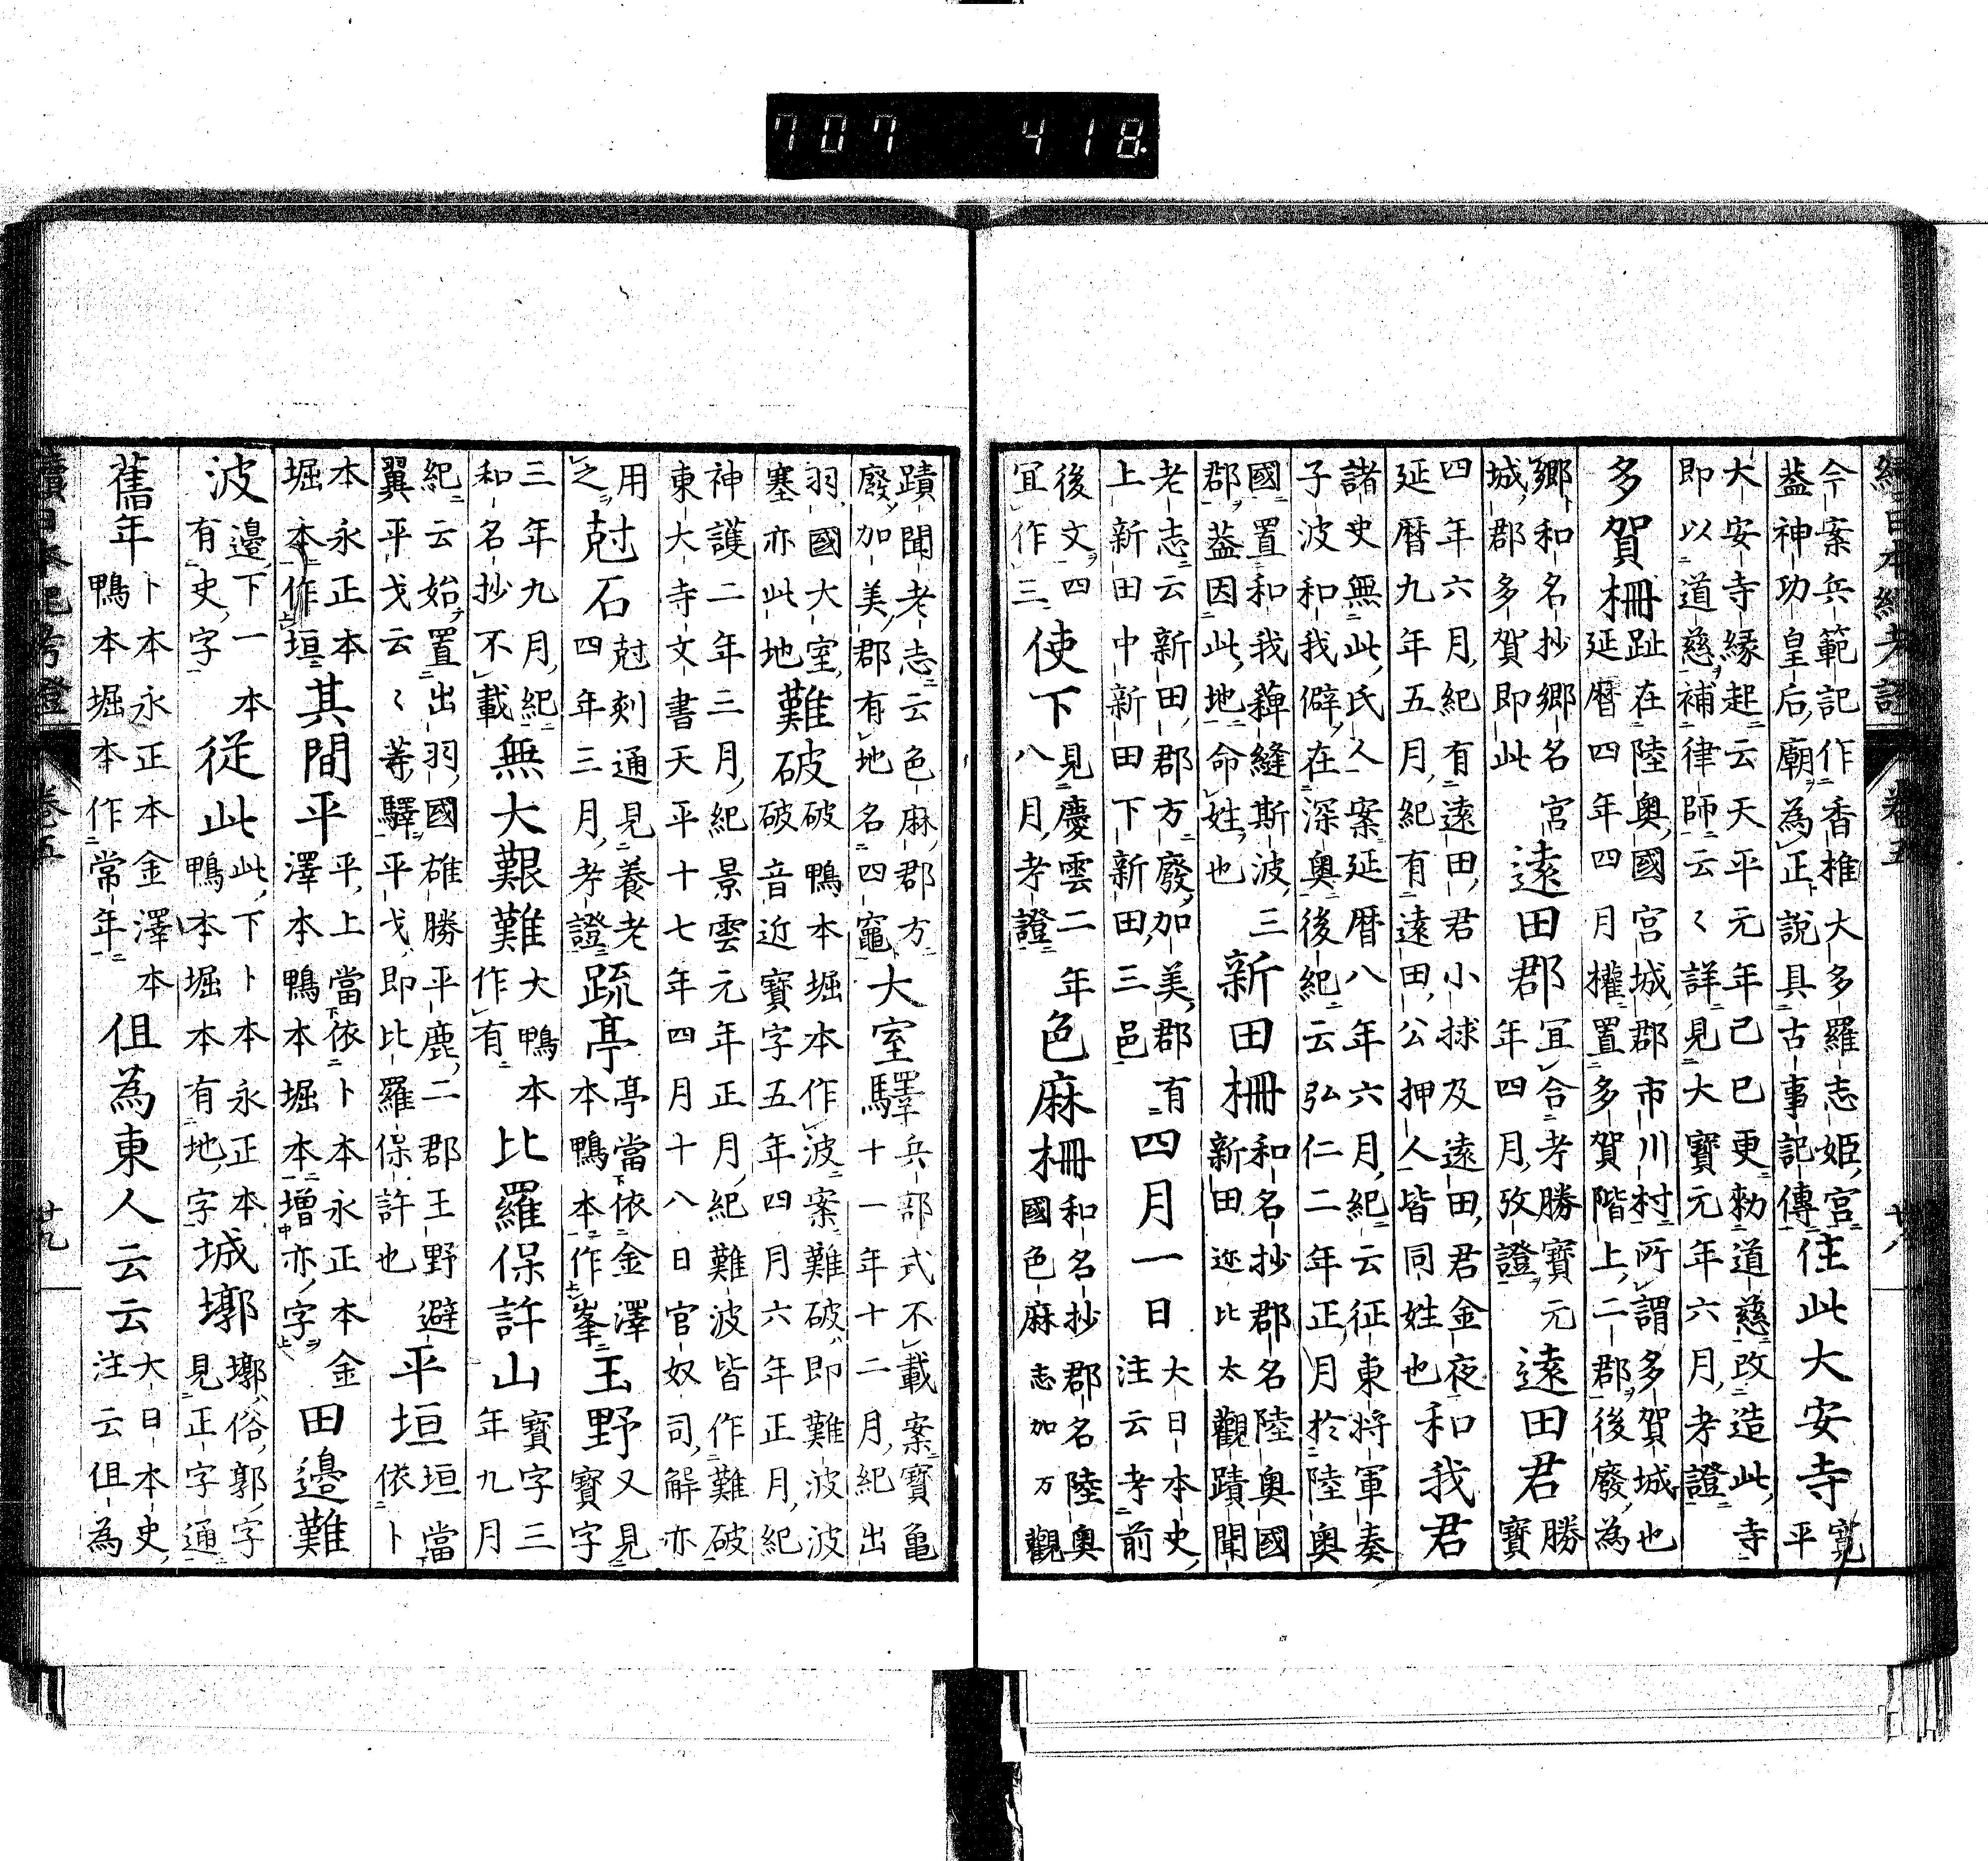 707 418
續日本紀考證 卷五 廿八
今案兵範記作香椎大多羅志姫宮
蓋神功皇后廟為正説具古事記傳
住此大安寺
寛平
大安寺縁起云天平元年己巳更勅道慈改造此寺
即以道慈補律師云々詳見大寶元年六月考證
多賀柵
趾在陸奥國宮城郡市川村所謂多賀城也
延暦四年四月權置多賀階上二郡後廢為
鄉和名抄鄉名宮
城郡多賀即此
遠田郡
宜合考勝寶元
年四月攷證
遠田君
勝寶
四年六月紀有遠田君小捄及遠田君金夜
延暦九年五月紀有遠田公押人皆同姓也
和我君
諸史無此氏人案延暦八年六月紀云征東將軍奏
子波和我僻在深奥後紀云弘仁二年正月於陸奥
國置和我薭縫斯波三
郡蓋因此地命姓也
新田柵
和名抄郡名陸奥國
新田迩比太觀蹟聞
老志云新田郡方廢加美郡有
上新田中新田下新田三邑
四月一日
大日本史
注云考前
後文四
宜作三
使下
見慶雲二年
八月考證
色麻柵
和名抄郡名陸奥
國色麻志加万觀
蹟聞老志云色麻郡方
廢加美郡有地名四竈
大室驛
兵部式不載案寶龜
十一年十二月紀出
羽國大室
塞亦此地
難破
破鴨本堀本作波案難破即難波波
破音近寶字五年四月六年正月紀
神護二年三月紀景雲元年正月紀難波皆作難破
東大寺文書天平十七年四月十八日官奴司解亦
用
之
尅石
尅刻通見養老
四年三月考證
疏亭
亭當依金澤
本鴨本作峯
玉野
又見
寶字
三年九月紀
和名抄不載
無大艱難
大鴨本
作有
比羅保許山
寶字三
年九月
紀云始置出羽國雄勝平鹿二郡王野避
翼平戈云々等驛平戈即比羅保許也
平垣
垣當
依卜
本永正本
堀本作垣
其間平
平上當依卜本永正本金
澤本鴨本堀本增亦字
田邉難
波
邉下一本
有史字
從此
此下卜本永正本
鴨本堀本有地字
城墎
墎俗郭字
見正字通
舊年
卜本永正本金澤本
鴨本堀本作常年
伹為東人云云
大日本史
注云伹為
續日本紀考證 卷五 廿九